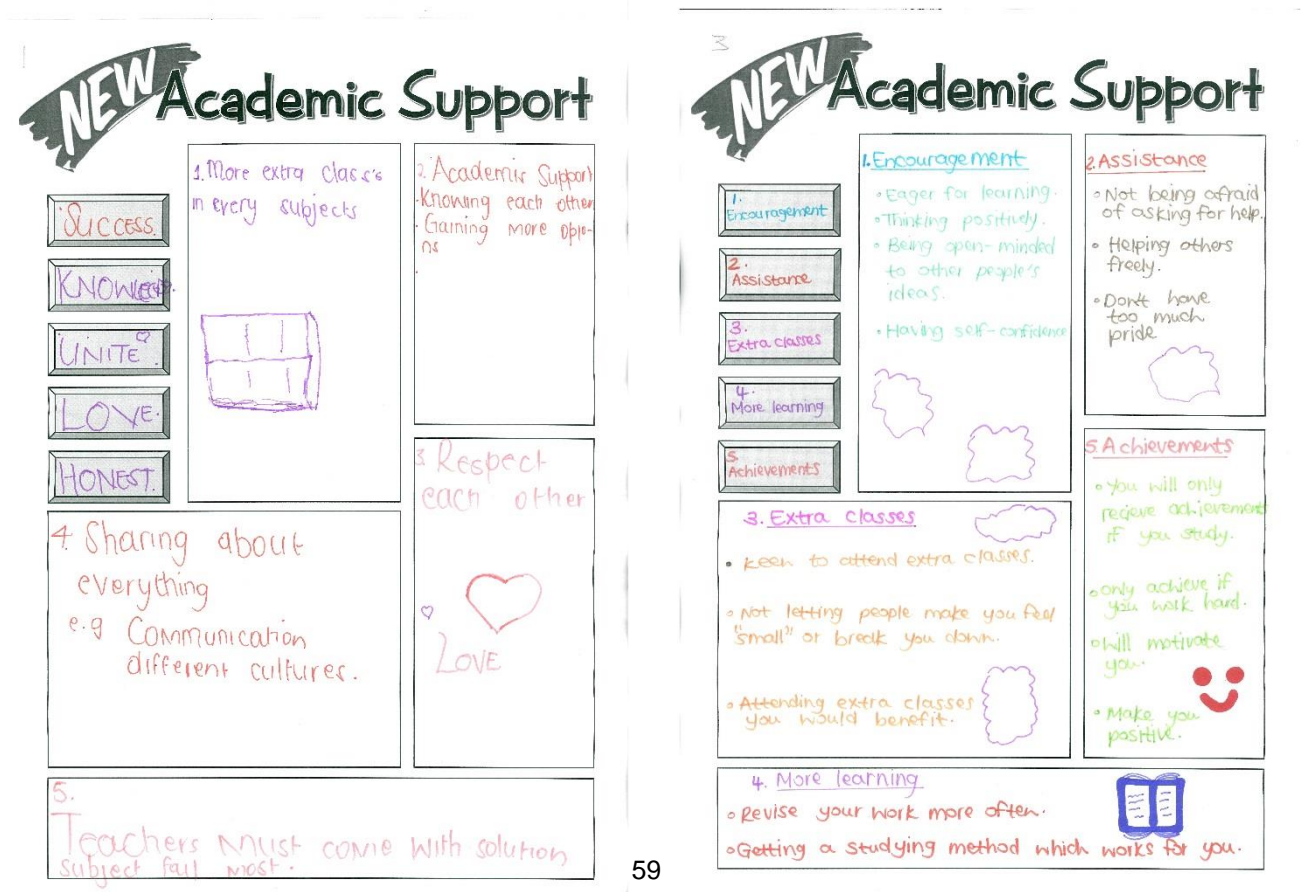 1
NEW Academic Support
SUCCESS.
KNOWLEDGE.
UNITE.
LOVE.
HONEST.
1. More extra class's
in every subjects
2. Academic Support
. Knowing each other
. Gaining more opio-
ns
3 Respect
each other
LOVE
4 Sharing about
everything
e.g Communication
different cultures.
5.
Teachers Must come with solution
subject fail most.
59
3
NEW Academic Support
1.
Encouragement
2.
Assistance
3.
Extra classes
4.
More learning
5.
Achievements
1. Encouragement
• Eager for learning.
• Thinking positively.
• Being open-minded
to other people's
ideas.
• Having self-confidence
2. Assistance
• Not being afraid
of asking for help.
• Helping others
freely.
• Don't have
too much
pride
3. Extra classes
• keen to attend extra classes.
• Not letting people make you feel
"small" or break you down.
• Attending extra classes
you would benefit.
5. Achievements
• You will only
recieve achievement
if you study.
• only achieve if
you work hard.
• will motivate
you.
• Make you
positive.
4. More learning
• Revise your work more often.
• Getting a studying method which works for you.